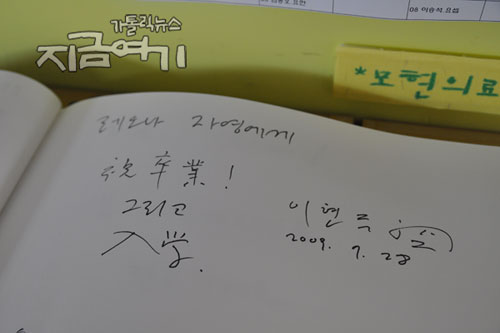 08 이승석 요셉
가톨릭뉴스
지금여기
레오나 자영에게
祝 卒業!
그리고
入学.
이현주
2009. 7. 28